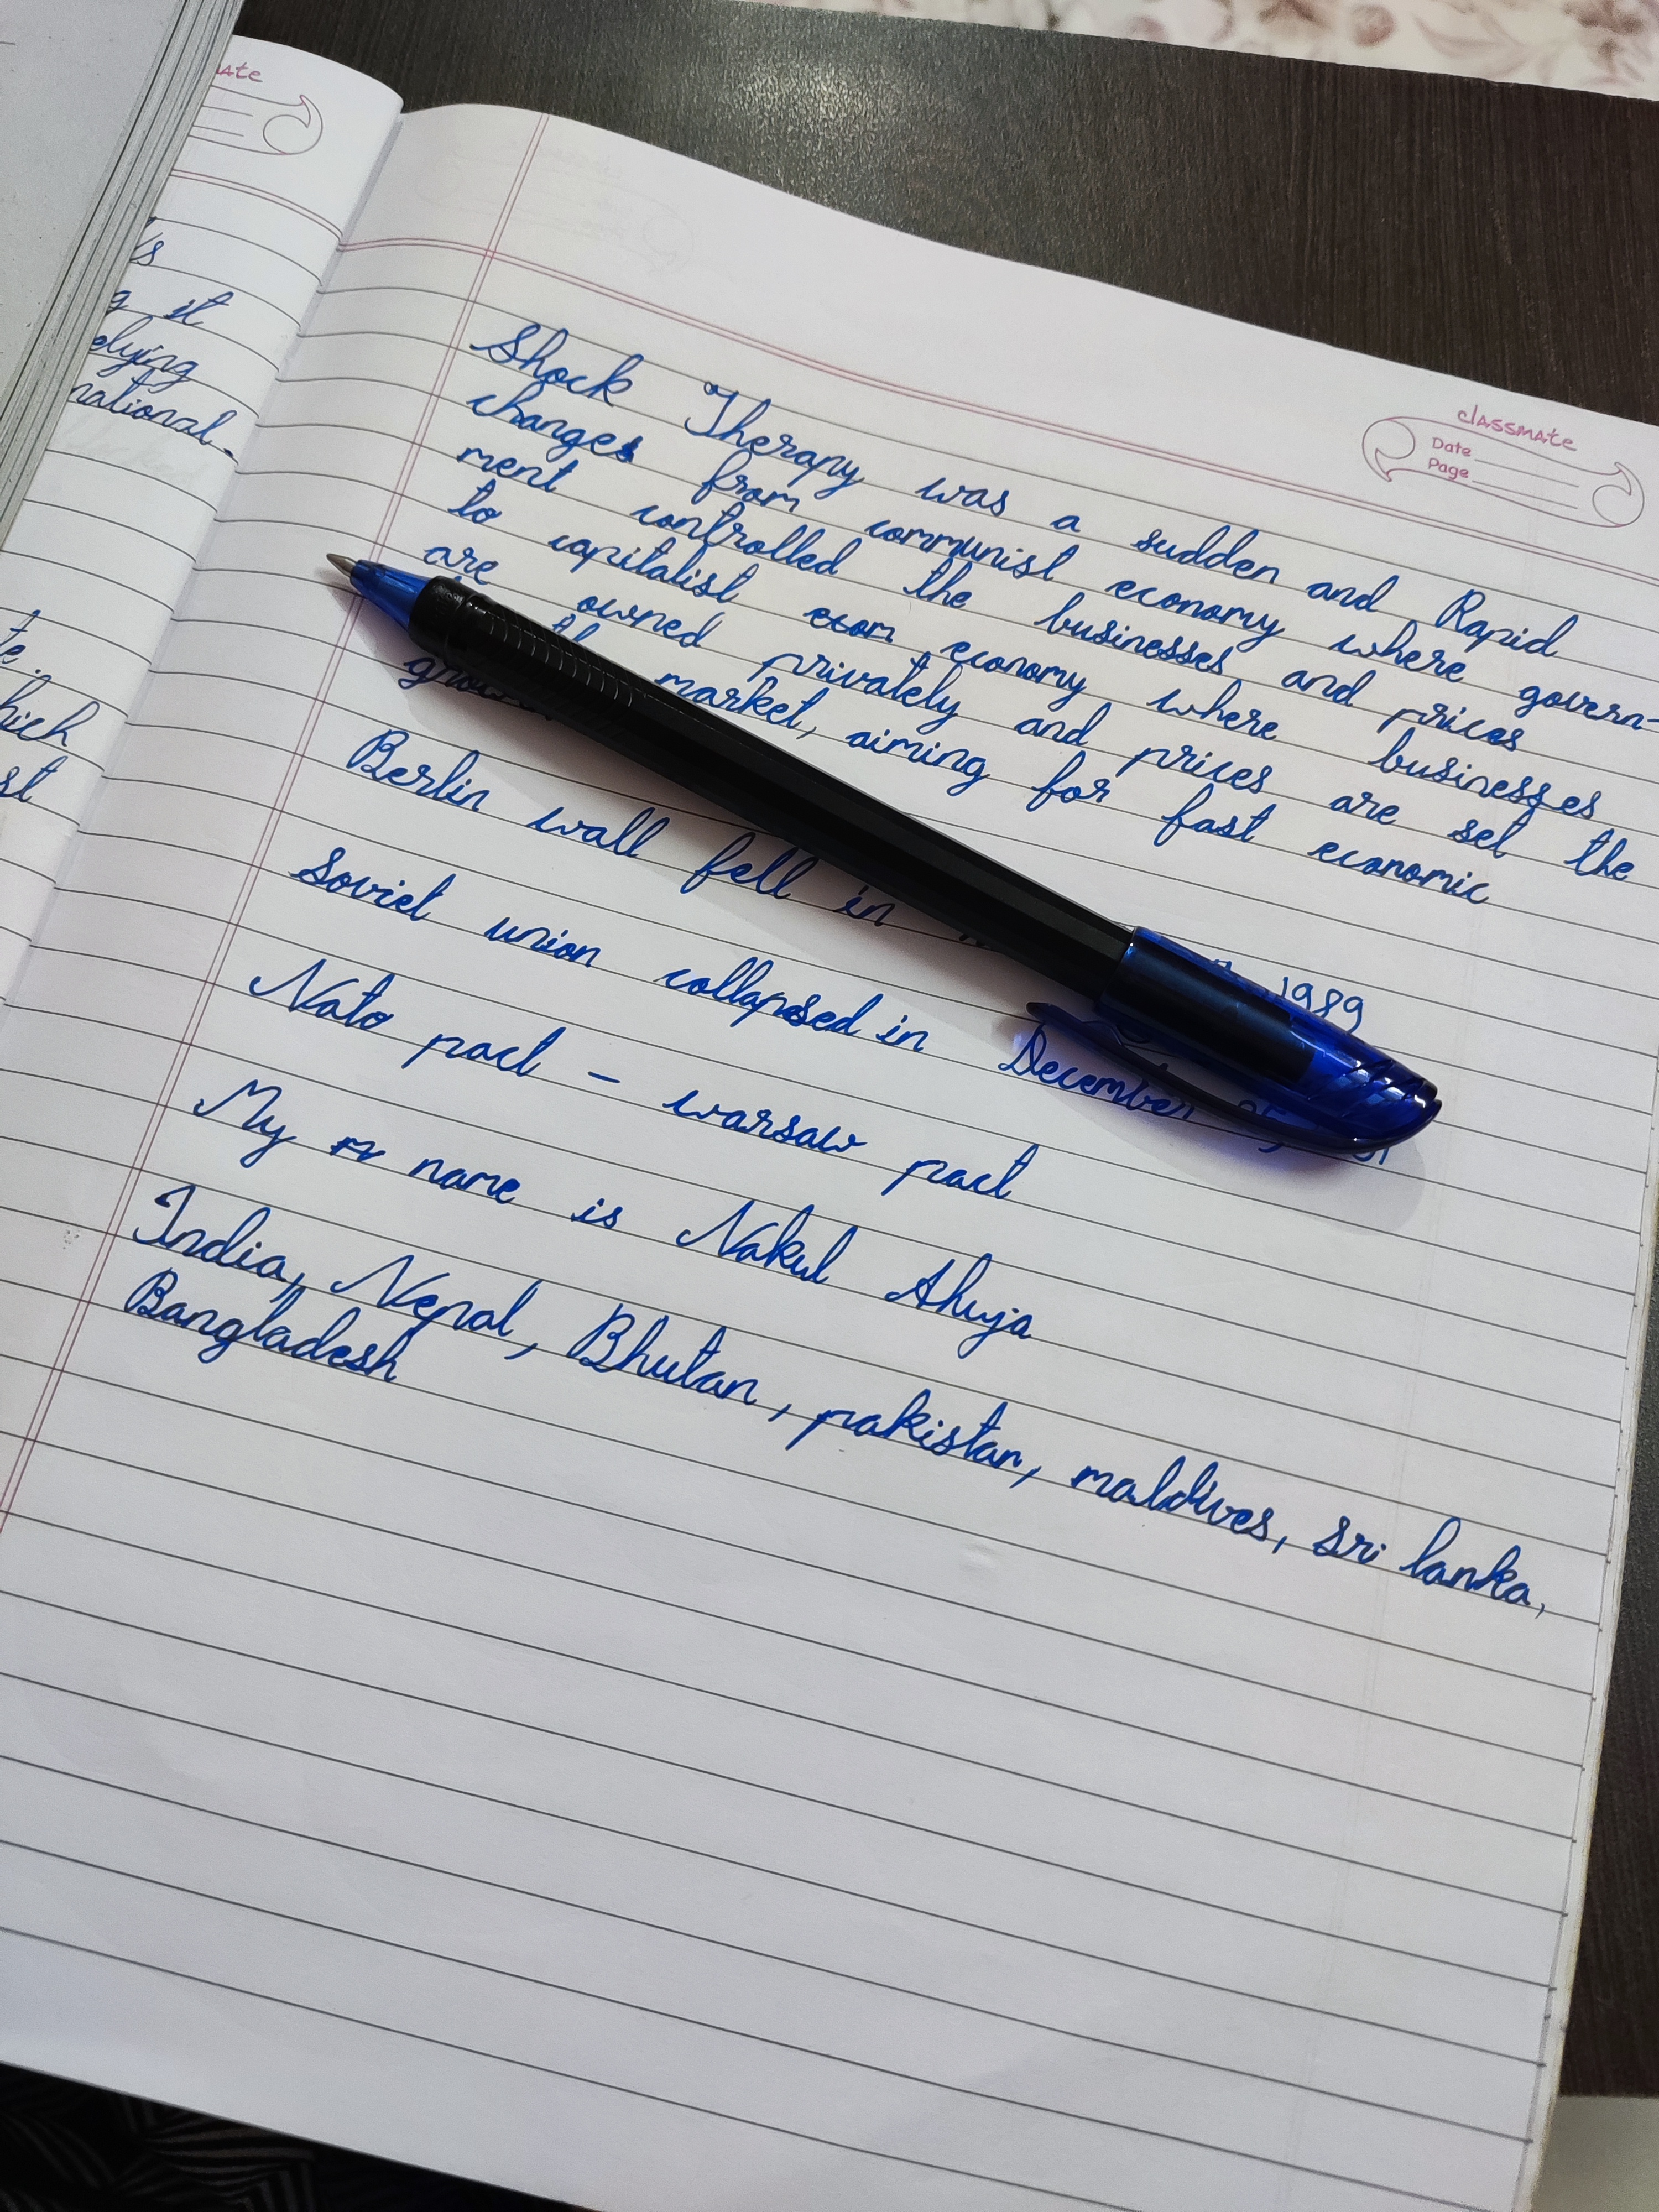 ate
it
elying
national.
hich
st
classmate
Date
Page
Shock Therapy was a sudden and Rapid
changes from communist economy where govern-
ment controlled the businesses and prices
to capitalist economy where businesses
are owned privately and prices are set the
market, aiming for fast economic
Berlin wall fell in 1989
Soviet union collapsed in December
Nato pact - warsaw pact
My name is Nakul Ahuja
India, Nepal, Bhutan, pakistan, maldives, sri lanka,
Bangladesh